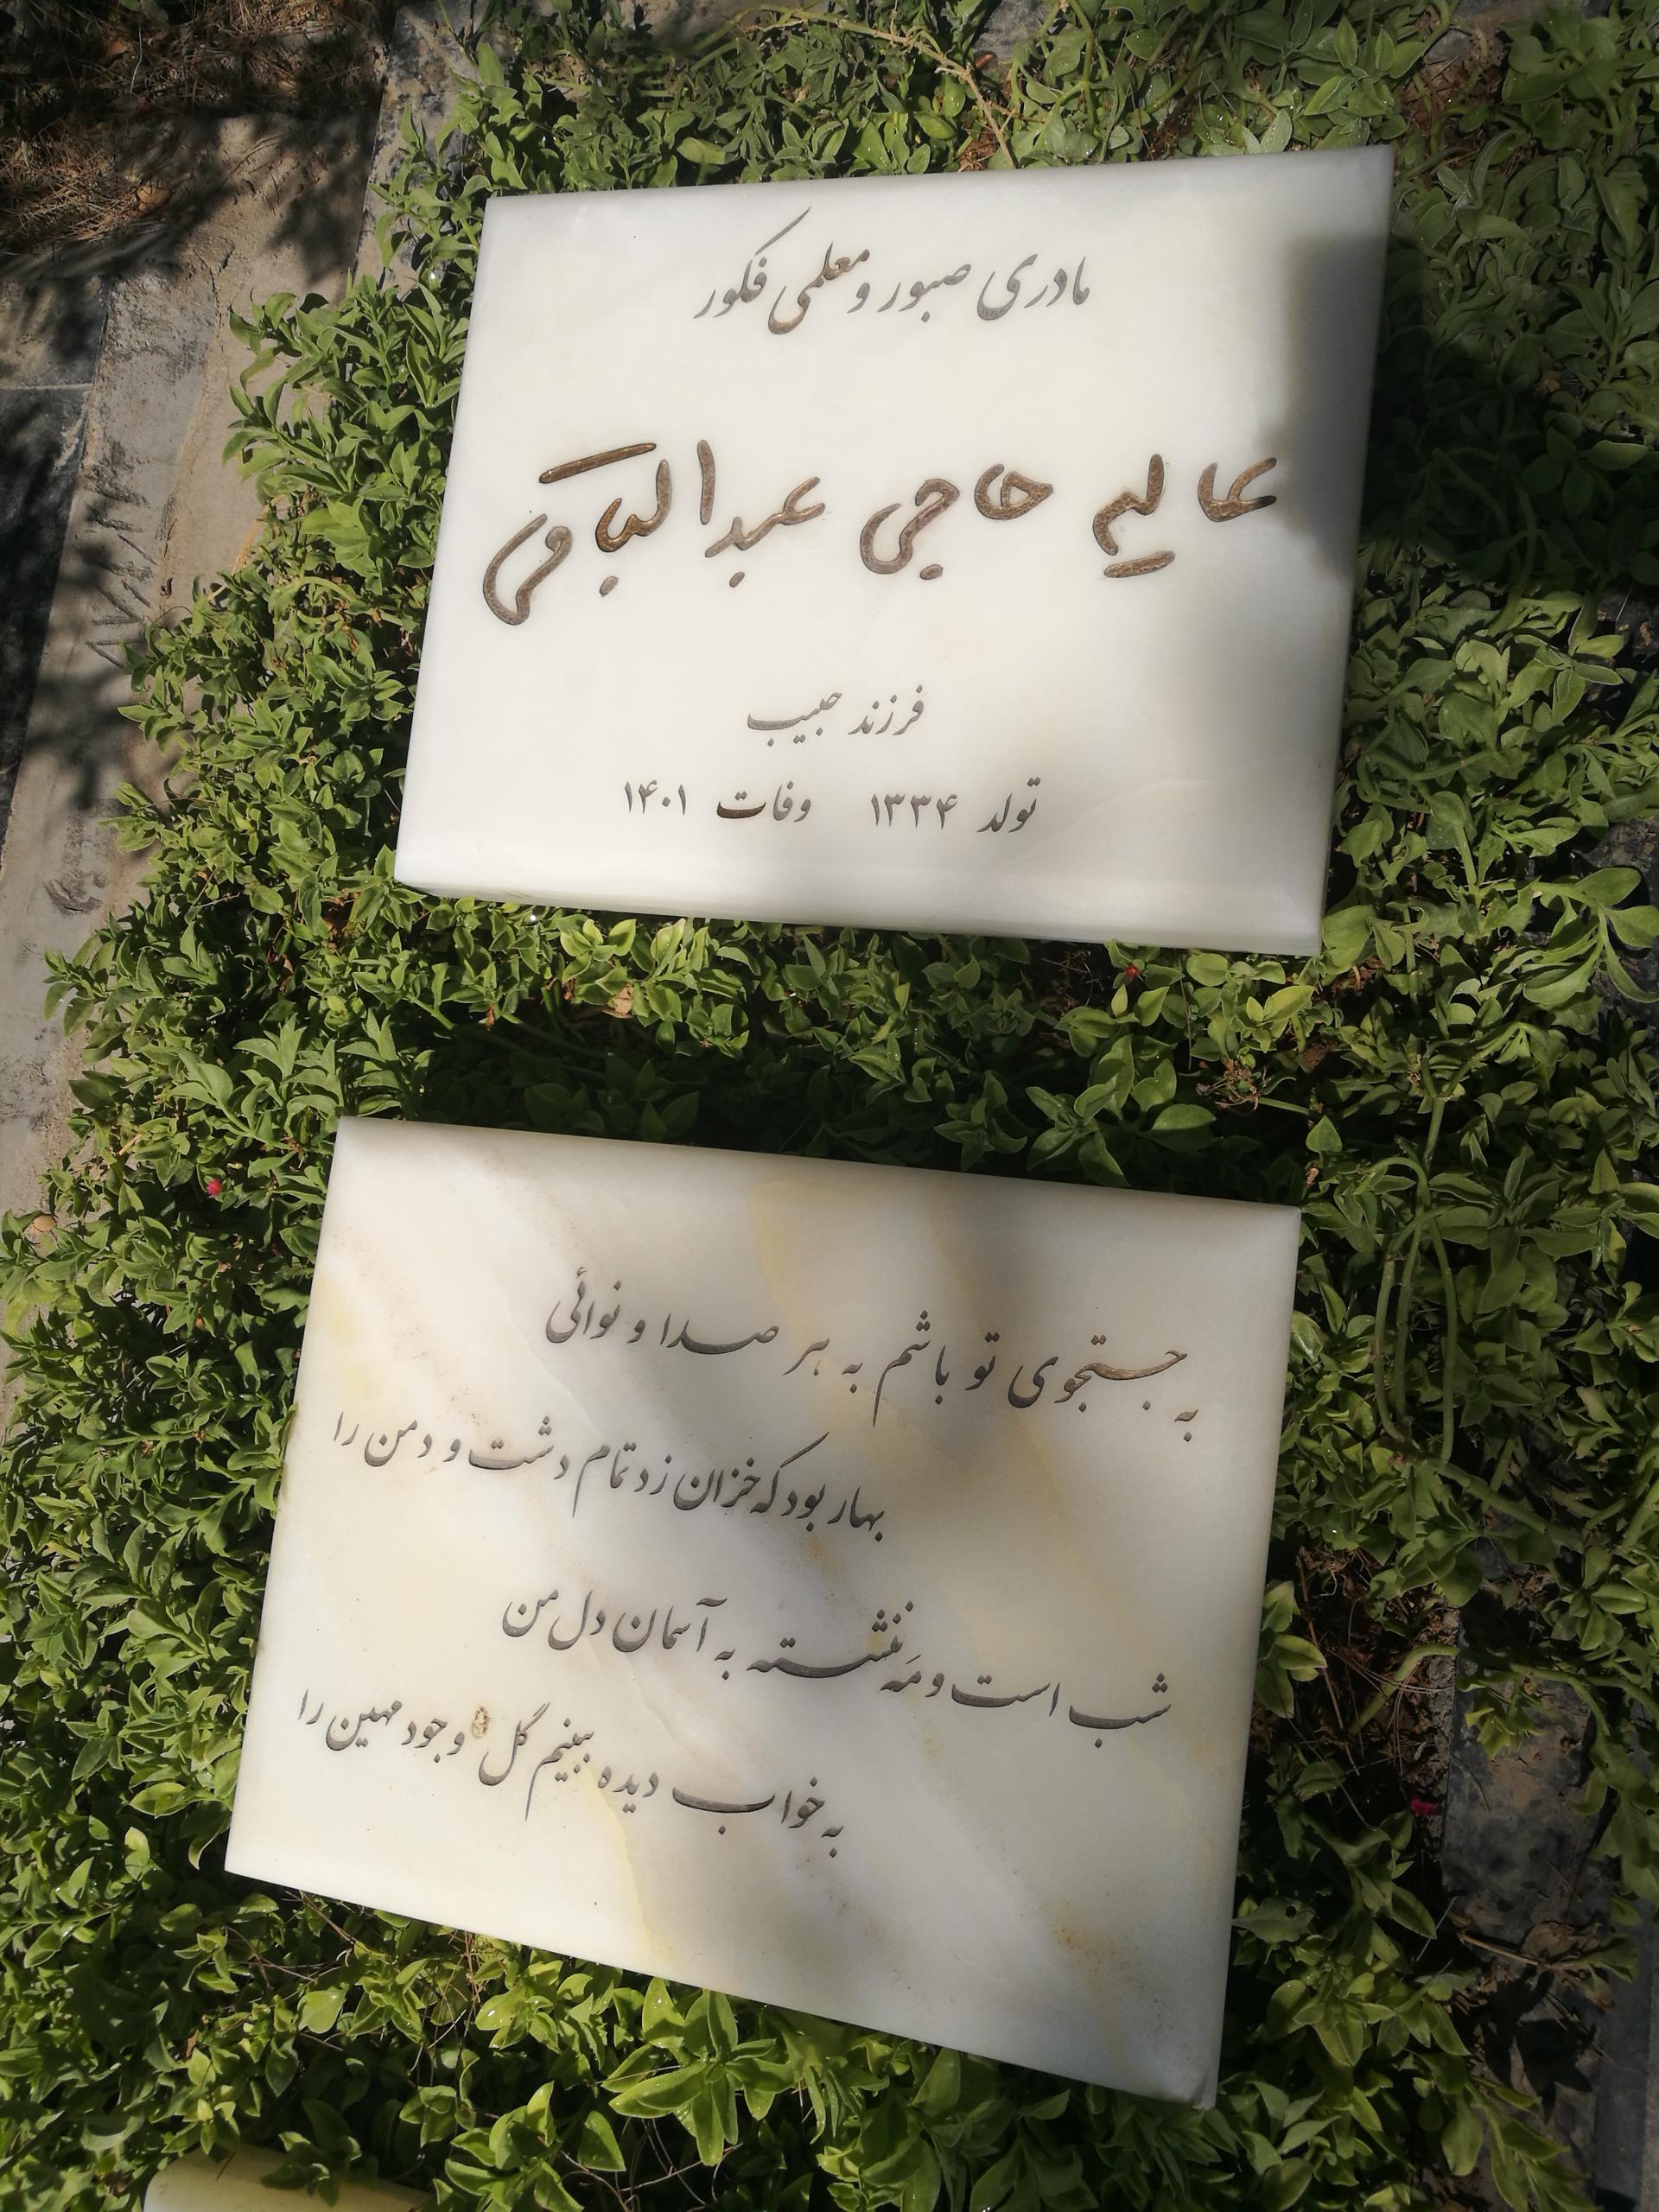 مادری صبور و معلمی فکور
عالیه حاجی عبدالباقی
فرزند حبیب
تولد ۱۳۳۴ وفات ۱۴۰۱
به جستجوی تو باشم به هر صدا و نوائی
بهار بود که خزان زد تمام دشت و دمن را
شب است و مَه ننشسته به آسمان دل من
به خواب دیده ببینم گل وجود مهین را